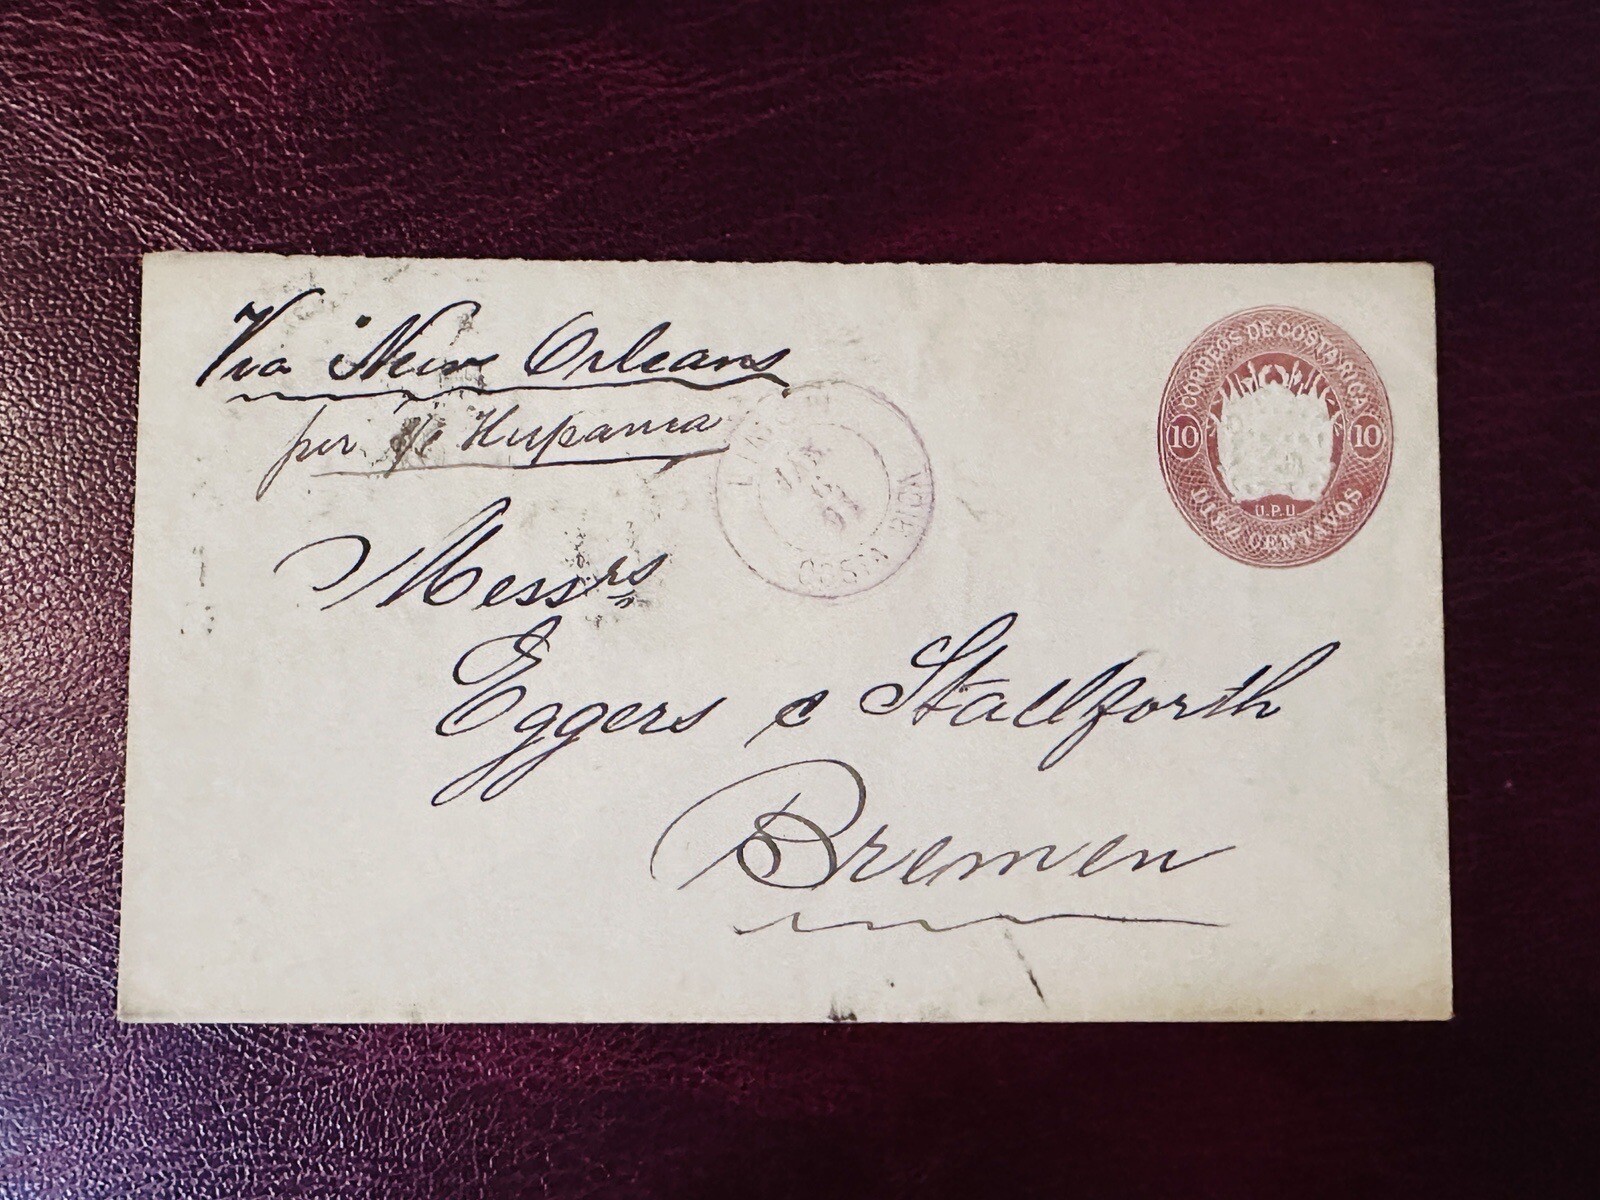 Via New Orleans
per s/s Hispania
CORREOS DE COSTA RICA
10 10
U.P.U
DIEZ CENTAVOS
COSTA RICA
Messrs
Eggers & Stallforth
Bremen